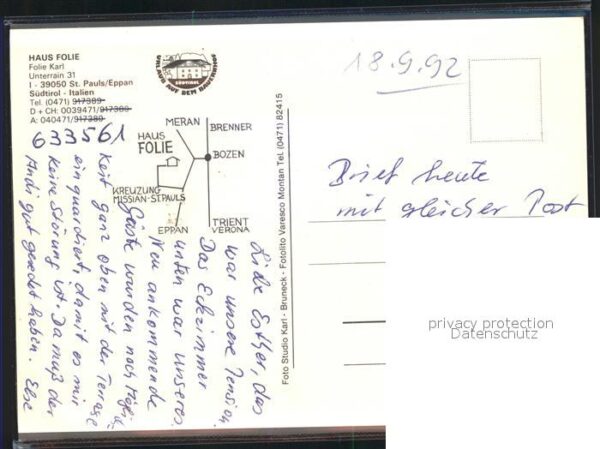 HAUS FOLIE
Folie Karl
Unterrain 31
I - 39050 St. Pauls/Eppan
Südtirol - Italien
Tel. (0471) 917389
D + CH: 0039471/917389
A: 040471/917389
633561
URLAUB AUF DEM BAUERNHOF
SÜDTIROL
MERAN
BRENNER
HAUS
FOLIE
BOZEN
KREUZUNG
MISSIAN-ST.PAULS
EPPAN
TRIENT
VERONA
Liebe Esther, das
war unsere Pension.
Das Eckzimmer
unten war unseres.
Neu ankommende
Gäste wurden nach Möglich-
keit ganz oben mit der Terrasse
einquartiert, damit es mir
keine Störung ist. Da muß der
Andi gut geredet haben. Else
Foto Studio Karl - Bruneck - Fotolito Varesco Montan Tel. (0471) 82415
18.9.92
Brief heute
mit gleicher Post
privacy protection
Datenschutz